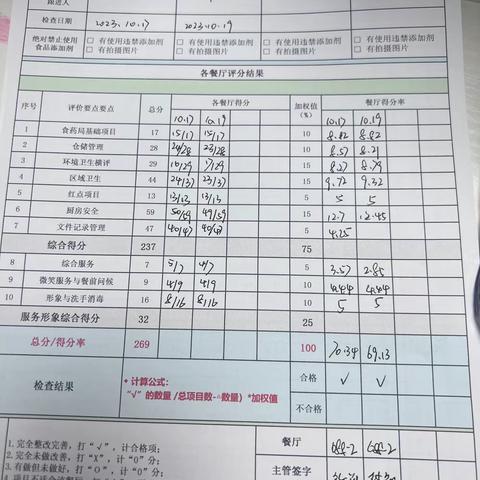 跟进人
检查日期 2023.10.17 2023.10.19
绝对禁止使用食品添加剂 □ 有使用违禁添加剂 □ 有使用违禁添加剂 □ 有使用违禁添加剂 □ 有使用违禁添加剂
□ 有拍摄图片 □ 有拍摄图片 □ 有拍摄图片 □ 有拍摄图片
各餐厅评分结果
序号 评价要点要点 总分 各餐厅得分 加权值(%) 餐厅得分率
10.17 10.19 10.17 10.19
1 食药局基础项目 17 15/17 15/17 10 8.82 8.82
2 仓储管理 28 24/28 23/28 10 8.57 8.21
3 环境卫生横评 29 16/29 17/29 15 8.27 8.79
4 区域卫生 44 24/37 23/37 15 9.72 9.32
5 红点项目 13 13/13 13/13 5 5 5
6 厨房安全 59 50/59 49/59 15 12.7 12.45
7 文件记录管理 47 40/47 5 4.25
综合得分 237 75
8 综合服务 7 5/7 4/7 5 3.57 2.85
9 微笑服务与餐前问候 9 4/9 4/9 10 4.44 4.44
10 形象与洗手消毒 16 8/16 8/16 10 5 5
服务形象综合得分 32 25
总分/得分率 269 100 70.34 69.13
检查结果 * 计算公式: 合格 √ √
“√”的数量 /总项目数-△数量）*加权值 不合格
1.完全整改完善，打“√”，计合格项; 餐厅
2.完全未做改善，打“X”，计“0”分;
3.有做但未做好，打“O”，计“0”分; 主管签字